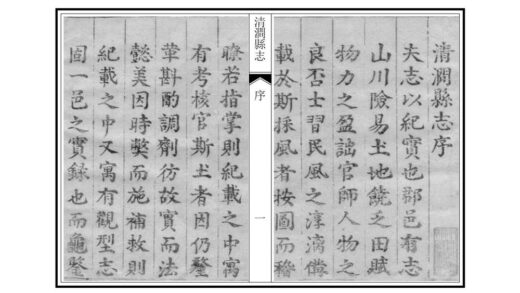 清澗縣志序
夫志以紀實也郡邑有志
山川險易土地饒乏田賦
物力之盈詘官師人物之
良否士習民風之淳漓備
載於斯採風者按圖而稽
清澗縣志
序
一
瞭若指掌則紀載之中寓
有考核官斯土者因仍釐
革斟酌調劑仿故實而法
懿美因時獘而施補救則
紀載之中又寓有觀型志
固一邑之實録也而龜鑒